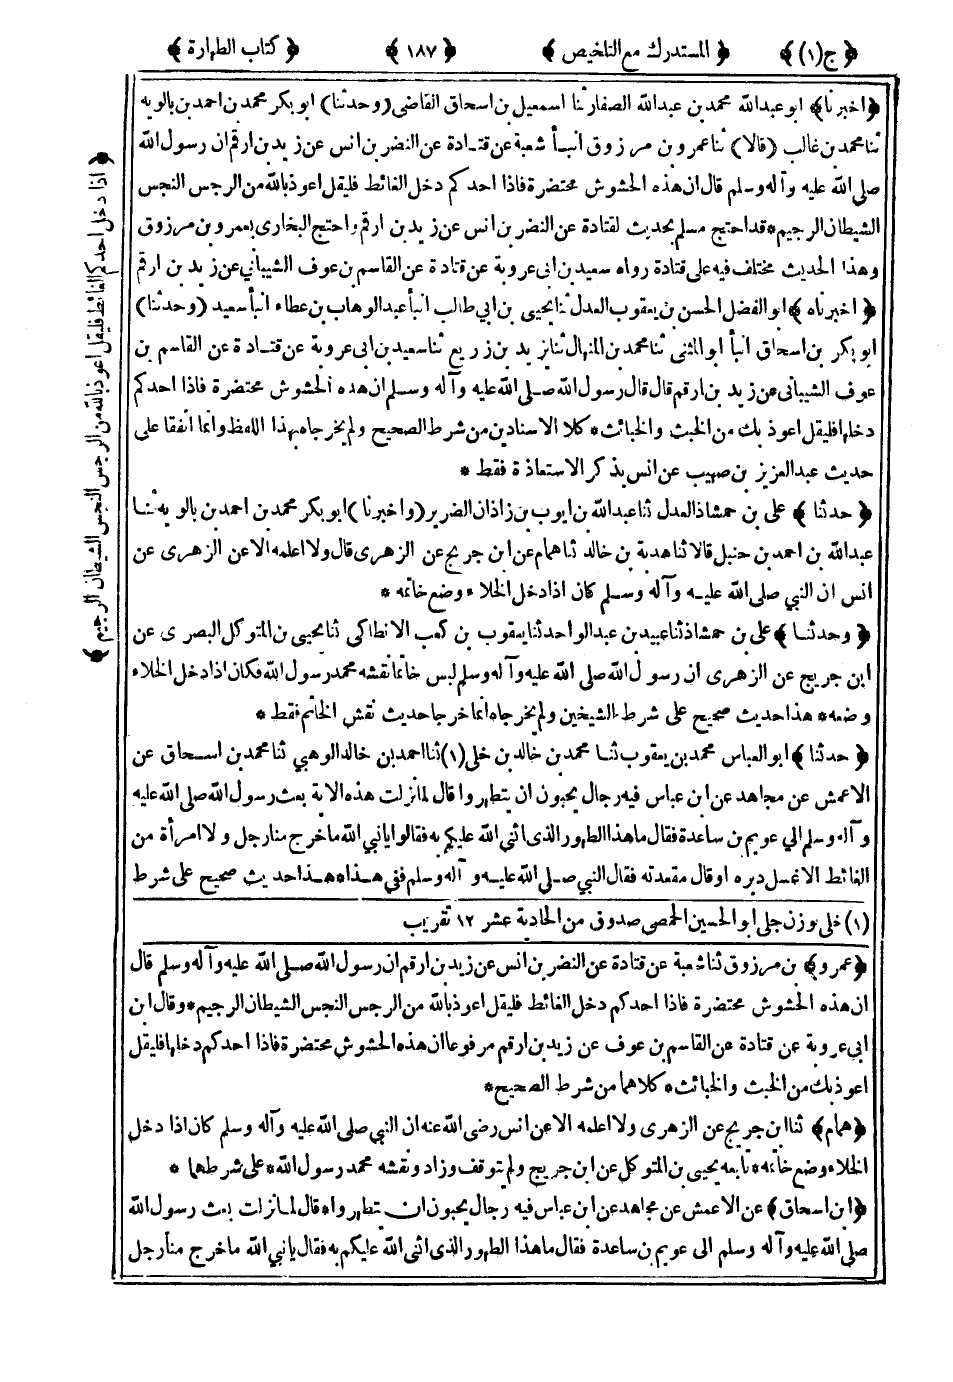 ﴿ ج(١) ﴾ ﴿ المستدرك مع التلخيص ﴾ ﴿ ١٨٧ ﴾ ﴿ كتاب الطهارة ﴾
﴿ اخبرنا ﴾ ابو عبدالله محمد بن عبدالله الصفار ثنا اسمعيل بن اسحاق القاضى (وحدثنا) ابو بكر محمد بن احمد بن بالويه
ثنا محمد بن غالب (قالا) ثنا عمرو بن مرزوق انبأ شعبة عن قتادة عن النضر بن انس عن زيد بن ارقم ان رسول الله
صلى الله عليه وآله وسلم قال ان هذه الحشوش محتضرة فاذا احدكم دخل الغائط فليقل اعوذ بالله من الرجس النجس
الشيطان الرجيم * قد احتج مسلم بحديث لقتادة عن النضر بن انس عن زيد بن ارقم واحتج البخارى بعمرو بن مرزوق
وهذا الحديث مختلف فيه على قتادة رواه سعيد بن ابى عروبة عن قتادة عن القاسم بن عوف الشيبانى عن زيد بن ارقم
﴿ اخبرناه ﴾ ابو الفضل الحسن بن يعقوب العدل ثنا يحيى بن ابي طالب انبأ عبد الوهاب بن عطاء انبأ سعيد (وحدثنا)
ابو بكر بن اسحاق انبأ ابو المثنى ثنا محمد بن المنهال ثنا يزيد بن زريع ثنا سعيد بن ابى عروبة عن قتادة عن القاسم بن
عوف الشيبانى عن زيد بن ارقم قال قال رسول الله صلى الله عليه وآله وسلم ان هذه الحشوش محتضرة فاذا احدكم
دخلها فليقل اعوذ بك من الخبث والخبائث * كلا الاسنادين من شرط الصحيح ولم يخرجاه بهذا اللفظ وانما اتفقا على
حديث عبد العزيز بن صهيب عن انس بذكر الاستعاذة فقط *
﴿ حدثنا ﴾ على بن حمشاذ العدل ثنا عبدالله بن ايوب بن زاذان الضرير (واخبرنا) ابو بكر محمد بن احمد بن بالويه ثنا
عبدالله بن احمد بن حنبل قالا ثنا هدبة بن خالد ثنا همام عن ابن جريج عن الزهرى قال ولا اعلمه الا عن الزهرى عن
انس ان النبي صلى الله عليه وآله وسلم كان اذا دخل الخلاء وضع خاتمه *
﴿ وحدثنا ﴾ على بن حمشاذ ثنا عبيد بن عبد الواحد ثنا يعقوب بن كعب الانطاكى ثنا يحيى بن المتوكل البصرى عن
ابن جريج عن الزهرى ان رسول الله صلى الله عليه وآله وسلم لبس خاتما نقشه محمد رسول الله فكان اذا دخل الخلاء
وضعه * هذا حديث صحيح على شرط الشيخين ولم يخرجاه انما خرجا حديث نقش الخاتم فقط *
﴿ حدثنا ﴾ ابو العباس محمد بن يعقوب ثنا محمد بن خالد بن خلى (١) ثنا احمد بن خالد الوهبي ثنا محمد بن اسحاق عن
الاعمش عن مجاهد عن ابن عباس فيه رجال يحبون ان يتطهروا قال لما نزلت هذه الاية بعث رسول الله صلى الله عليه
وآله وسلم الى عويم بن ساعدة فقال ما هذا الطهور الذى اثنى الله عليكم به فقالوا يا نبي الله ما خرج منا رجل ولا امرأة من
الغائط الا غسل دبره او قال مقعدته فقال النبي صلى الله عليه وآله وسلم ففى هذا * هذا حديث صحيح على شرط
(١) خلى بوزن جلى ابو الحسين الحمصى صدوق من الحادية عشر ١٢ تقريب
﴿ عمرو ﴾ بن مرزوق ثنا شعبة عن قتادة عن النضر بن انس عن زيد بن ارقم ان رسول الله صلى الله عليه وآله وسلم قال
ان هذه الحشوش محتضرة فاذا احدكم دخل الغائط فليقل اعوذ بالله من الرجس النجس الشيطان الرجيم * وقال ابن
ابى عروبة عن قتادة عن القاسم بن عوف عن زيد بن ارقم مرفوعا ان هذه الحشوش محتضرة فاذا احدكم دخلها فليقل
اعوذ بك من الخبث والخبائث * كلاهما من شرط الصحيح *
﴿ همام ﴾ ثنا ابن جريج عن الزهرى ولا اعلمه الا عن انس رضى الله عنه ان النبي صلى الله عليه وآله وسلم كان اذا دخل
الخلاء وضع خاتمه * تابعه يحيى بن المتوكل عن ابن جريج ولم يتوقف وزاد ونقشه محمد رسول الله * على شرطهما *
﴿ ابن اسحاق ﴾ عن الاعمش عن مجاهد عن ابن عباس فيه رجال يحبون ان يتطهروا * قال لما نزلت بعث رسول الله
صلى الله عليه وآله وسلم الى عويم بن ساعدة فقال ما هذا الطهور الذى اثنى الله عليكم به فقال يا نبي الله ما خرج منا رجل
﴿ اذا دخل احدكم الغائط فليقل اعوذ بالله من الرجس النجس الشيطان الرجيم ﴾